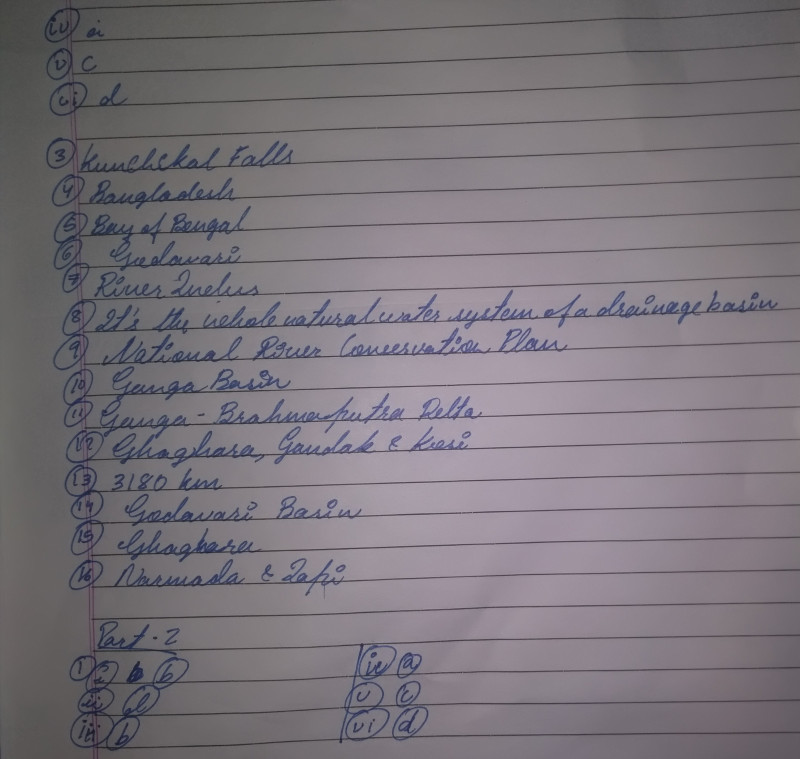 iv a
v c
vi d
3 Kunchikal Falls
4 Bangladesh
5 Bay of Bengal
6 Godavari
7 River Indus
8 It's the whole natural water system of a drainage basin
9 National River Conservation Plan
10 Ganga Basin
11 Ganga - Brahmaputra Delta
12 Ghaghara, Gandak & Kosi
13 3180 km
14 Godavari Basin
15 Ghaghara
16 Narmada & Tapi
Part - 2
1 i b b
ii d
iii b
iv a
v c
vi d